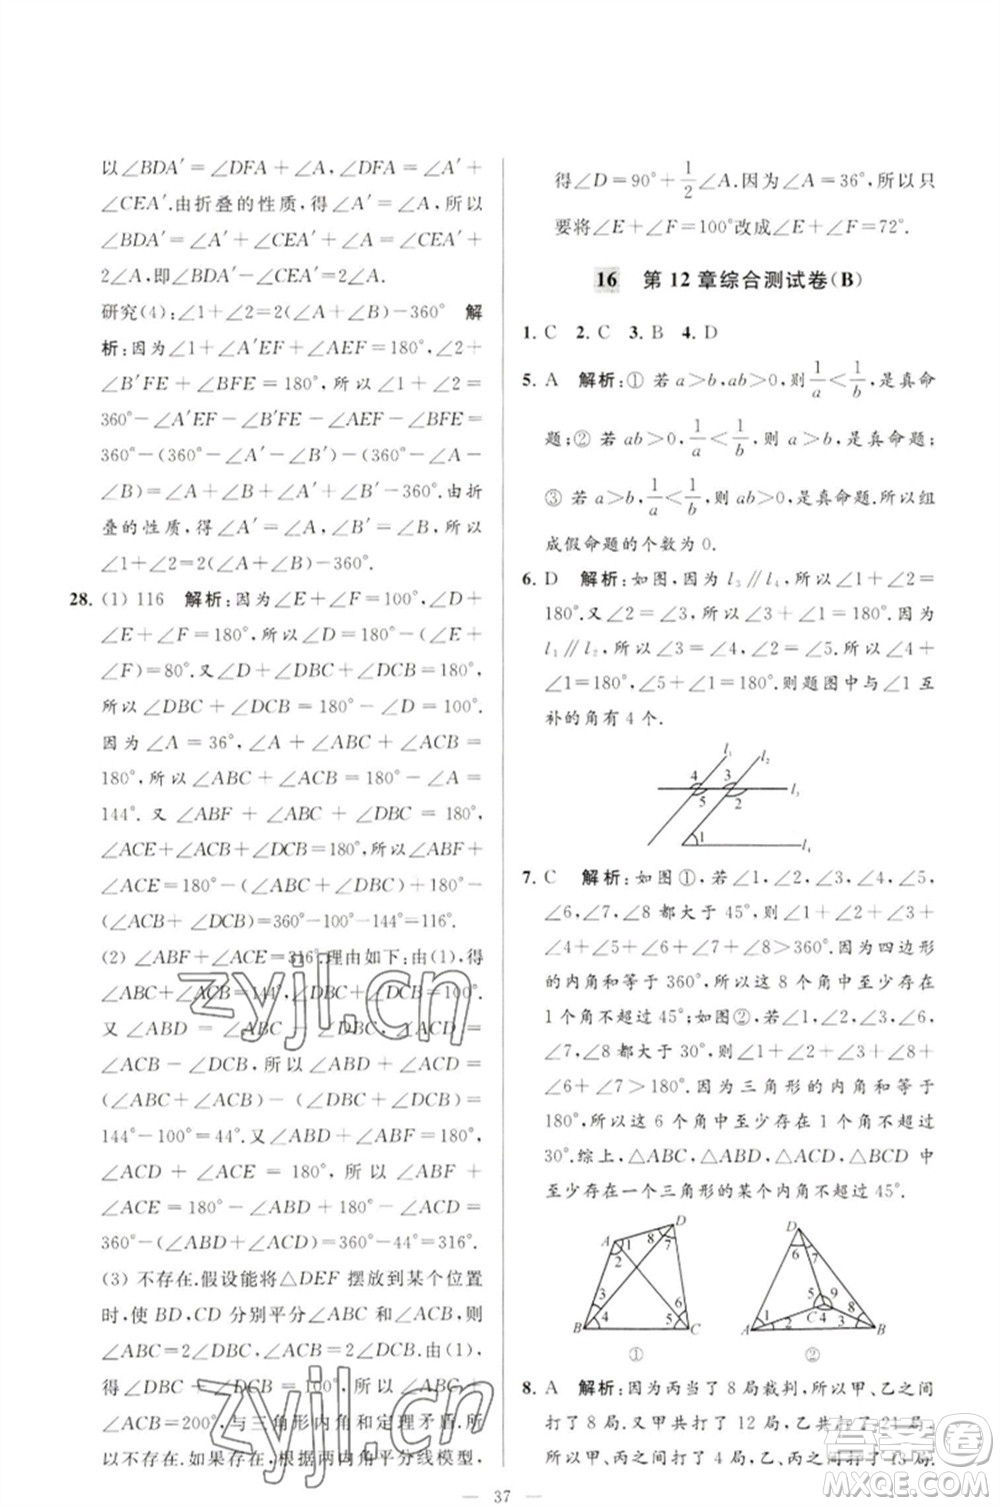 以∠BDA′＝∠DFA＋∠A，∠DFA＝∠A′＋
∠CEA′.由折叠的性质，得∠A′＝∠A，所以
∠BDA′＝∠A′＋∠CEA′＋∠A＝∠CEA′＋
2∠A，即∠BDA′－∠CEA′＝2∠A.
研究(4)：∠1＋∠2＝2(∠A＋∠B)－360° 解
析：因为∠1＋∠A′EF＋∠AEF＝180°，∠2＋
∠B′FE＋∠BFE＝180°，所以∠1＋∠2＝
360°－∠A′EF－∠B′FE－∠AEF－∠BFE＝
360°－(360°－∠A′－∠B′)－(360°－∠A－
∠B)＝∠A′＋∠B′＋∠A＋∠B－360°.由折
叠的性质，得∠A′＝∠A，∠B′＝∠B，所以
∠1＋∠2＝2(∠A＋∠B)－360°.
28. (1) 116 解析：因为∠E＋∠F＝100°，∠D＋
∠E＋∠F＝180°，所以∠D＝180°－(∠E＋
∠F)＝80°.又∠D＋∠DBC＋∠DCB＝180°，
所以∠DBC＋∠DCB＝180°－∠D＝100°.
因为∠A＝36°，∠A＋∠ABC＋∠ACB＝
180°，所以∠ABC＋∠ACB＝180°－∠A＝
144°.又∠ABF＋∠ABC＋∠DBC＝180°，
∠ACE＋∠ACB＋∠DCB＝180°，所以∠ABF＋
∠ACE＝180°－(∠ABC＋∠DBC)＋180°－
(∠ACB＋∠DCB)＝360°－100°－144°＝116°.
(2) ∠ABF＋∠ACE＝316°理由如下：由(1)，得
∠ABC＋∠ACB＝144°，∠DBC＋∠DCB＝100°.
又∠ABD＝∠ABC－∠DBC，∠ACD＝
∠ACB－∠DCB，所以∠ABD＋∠ACD＝
(∠ABC＋∠ACB)－(∠DBC＋∠DCB)＝
144°－100°＝44°.又∠ABD＋∠ABF＝180°，
∠ACD＋∠ACE＝180°，所以∠ABF＋
∠ACE＝180°－∠ABD＋180°－∠ACD＝
360°－(∠ABD＋∠ACD)＝360°－44°＝316°.
(3) 不存在.假设能将△DEF 摆放到某个位置
时，使 BD，CD 分别平分∠ABC 和∠ACB，则
∠ABC＝2∠DBC，∠ACB＝2∠DCB.由(1)，
得∠DBC＋∠DCB＝100°，所以∠ABC＋
∠ACB＝200°，与三角形内角和定理矛盾，所以
不存在.如果存在，根据两内角平分线模型，
得∠D＝90°＋1/2∠A.因为∠A＝36°，所以只
要将∠E＋∠F＝100°改成∠E＋∠F＝72°.
16 第12章综合测试卷(B)
1. C 2. C 3. B 4. D
5. A 解析：① 若 a＞b，ab＞0，则1/a＜1/b，是真命
题；② 若 ab＞0，1/a＜1/b，则 a＞b，是真命题；
③ 若 a＞b，1/a＜1/b，则 ab＞0，是真命题.所以组
成假命题的个数为 0.
6. D 解析：如图，因为 l₃∥l₄，所以∠1＋∠2＝
180°.又∠2＝∠3，所以∠1＋∠3＝180°.因为
l₁∥l₂，所以∠3＝∠4，∠2＝∠5.所以∠4＋
∠1＝180°，∠5＋∠1＝180°.则题图中与∠1 互
补的角有 4 个.
l₁ l₂
4 3 l₃
5 2
1 l₄
7. C 解析：如图①，若∠1，∠2，∠3，∠4，∠5，
∠6，∠7，∠8 都大于 45°，则∠1＋∠2＋∠3＋
∠4＋∠5＋∠6＋∠7＋∠8＞360°.因为四边形
的内角和等于 360°，所以这 8 个角中至少存在
一个角不超过 45°；如图②，若∠1，∠2，∠3，
∠6，∠7，∠8 都大于 30°，则∠1＋∠2＋∠3＋
∠6＋∠7＋∠8＞180°.因为三角形的内角和等于
180°，所以这 6 个角中至少存在一个角不超过
30°.综上，△ABC，△ABD，△ACD，△BCD 中
至少存在一个三角形的某个内角不超过 45°.
D D
A 1 8 7 6 7
2 5 9
3 5 1 C 4 8
B 4 6 C A 2 3 B
① ②
8. A 解析：因为丙当了 8 局裁判，所以甲、乙之间
打了 8 局.又甲共打了 12 局，乙共打了 21 局，
所以甲、丙之间打了 4 局，乙、丙之间打了 13 局.
37
zyjl.cn
zyjl.cn
答案圈
MXQE.COM